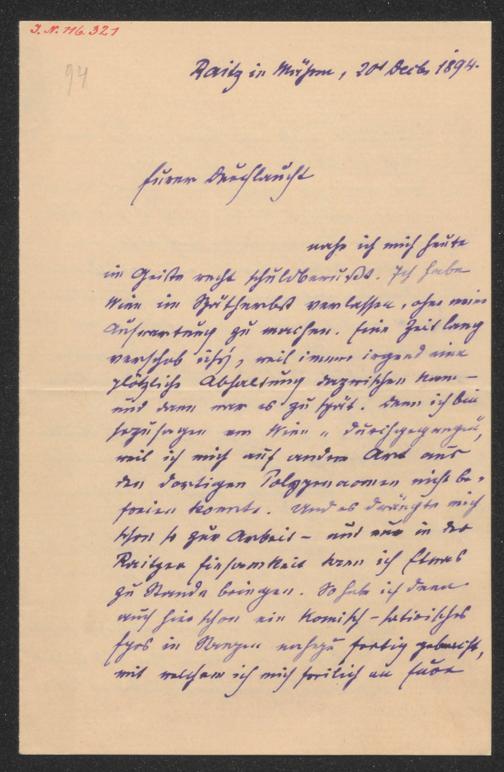 J. N. 116.321
94
Raitz in Mähren, 20t Decbr 1894.
Eurer Durchlaucht
nahe ich mich heute
im Geiste recht schuldbewußt. Ich habe
Wien im Spätherbst verlassen, ohne meine
Aufwartung zu machen. Eine Zeit lang
verschob ich's, weil immer irgend eine
plötzliche Abhaltung dazwischen kam –
und dann war es zu spät. Denn ich bin
sozusagen aus Wien „durchgegangen",
weil ich mich auf andere Art aus
den dortigen Polypenarmen nicht be-
freien konnte. Und es drängte mich
schon so zur Arbeit – und nur in der
Raitzer Einsamkeit kann ich Etwas
zu Stande bringen. So habe ich denn
auch hier schon ein komisch-satirisches
Epos in Stanzen nahezu fertig gebracht,
mit welchem ich mich freilich an Eure